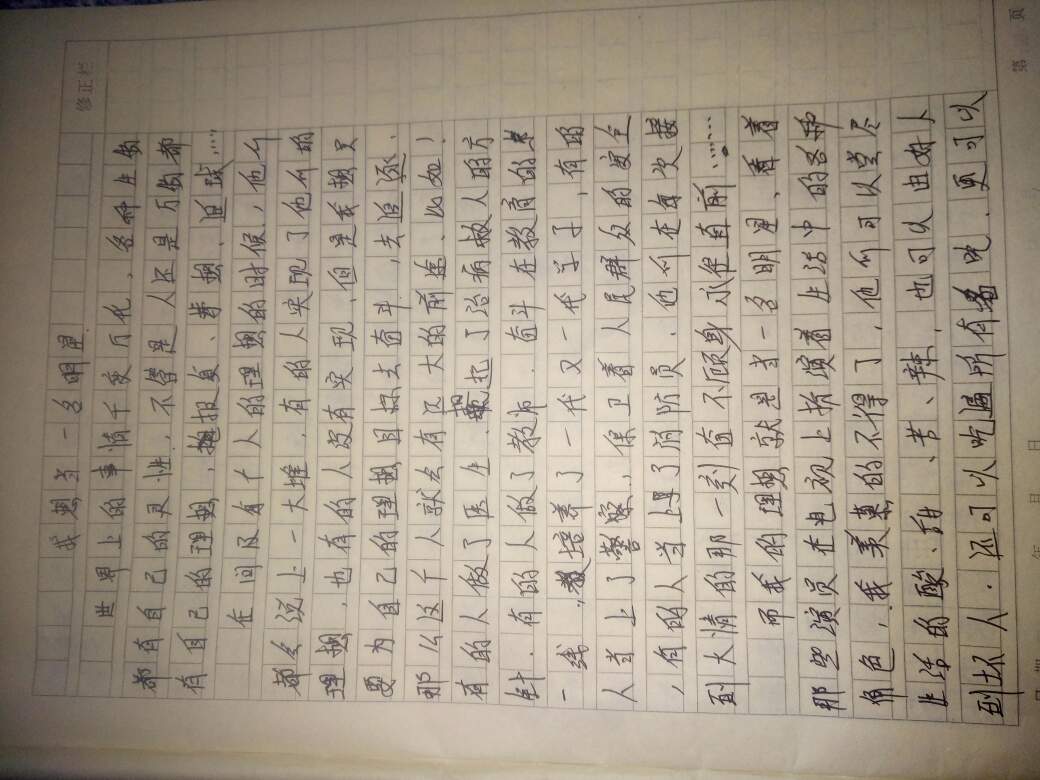 修正栏
我想当一名明星
世界上的事情千变万化,各种生物
都有自己的灵性,不管是人还是万物都
有自己的理想,报复、梦想、追球……
在问及有个人的理想的时候,他们
都会说上一大堆,有的人实现了他们的
理想,也有的人没有实现,但是我想只
要为自己的理想目标去奋斗,去追逐,
那么这个人就会有远大的前途、比如!
有的人做了医生担起了治病救人的方
针.有的人做了教师.奋斗在教育的
一线,培养了一代又一代学子,有的
人当上了警察,保卫着人民群众的安全
,有的人当上了消防员,他们在每次接
到大情的那一刻值不顾身永往直前……
而我的理想就是当一名明星、看着
那些演员在电视上扮演着生活中的各种
角色,我羡慕的不得了,他们可以尝尽
生活的酸、甜、苦、辣,也可以由好人
到坏人.还可以吃遍所有 吃、更可以
第 页
年 月 日